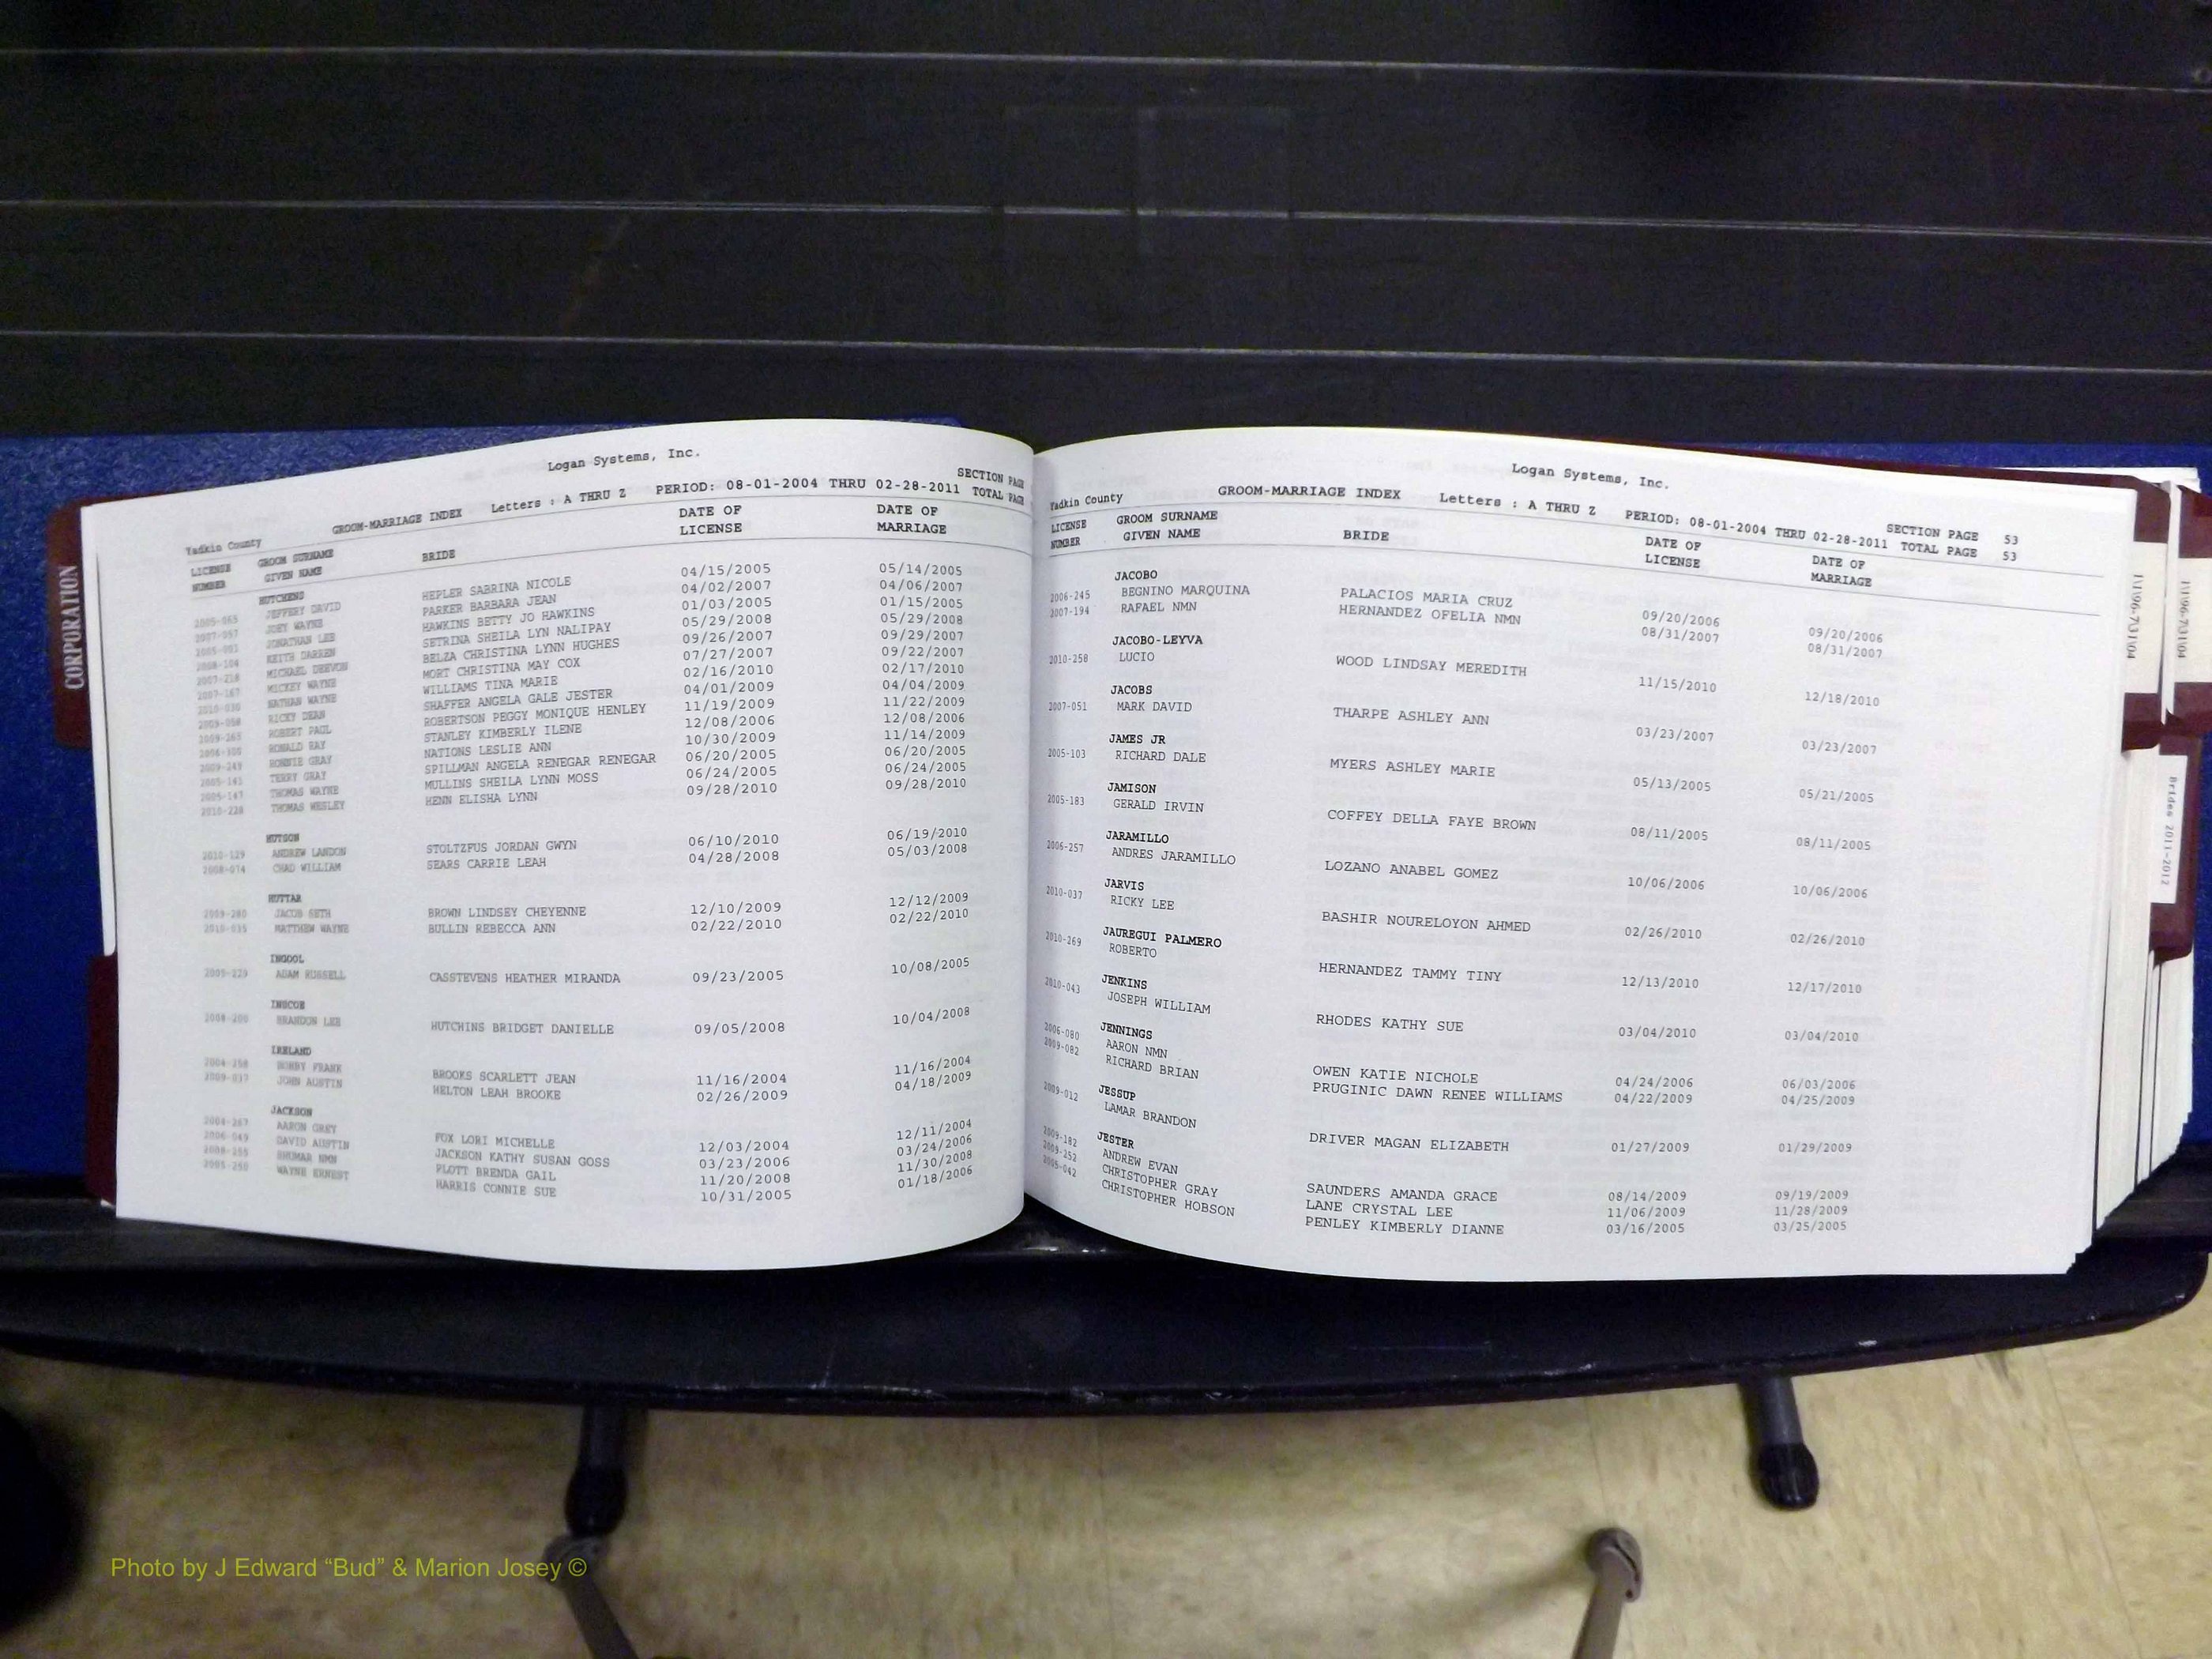 CORPORATION
Logan Systems, Inc.
SECTION PAGE
Yadkin County GROOM-MARRIAGE INDEX Letters : A THRU Z PERIOD: 08-01-2004 THRU 02-28-2011 TOTAL PAGE
LICENSE GROOM SURNAME DATE OF DATE OF
NUMBER GIVEN NAME BRIDE LICENSE MARRIAGE
HUTCHENS
2005-065 JEFFERY DAVID HEPLER SABRINA NICOLE 04/15/2005 05/14/2005
2007-057 JOEY WAYNE PARKER BARBARA JEAN 04/02/2007 04/06/2007
JONATHAN LEE HAWKINS BETTY JO HAWKINS 01/03/2005 01/15/2005
2008-104 KEITH DARREN SETRINA SHEILA LYN NALIPAY 05/29/2008 05/29/2008
2007-218 MICHAEL DEEVON BELZA CHRISTINA LYNN HUGHES 09/26/2007 09/29/2007
2007-167 MICKEY WAYNE MORT CHRISTINA MAY COX 07/27/2007 09/22/2007
2010-030 NATHAN WAYNE WILLIAMS TINA MARIE 02/16/2010 02/17/2010
2009-058 RICKY DEAN SHAFFER ANGELA GALE JESTER 04/01/2009 04/04/2009
2009-265 ROBERT PAUL ROBERTSON PEGGY MONIQUE HENLEY 11/19/2009 11/22/2009
RONALD RAY STANLEY KIMBERLY ILENE 12/08/2006 12/08/2006
2009-249 RONNIE GRAY NATIONS LESLIE ANN 10/30/2009 11/14/2009
2005-143 TERRY GRAY SPILLMAN ANGELA RENEGAR RENEGAR 06/20/2005 06/20/2005
2005-147 THOMAS WAYNE MULLINS SHEILA LYNN MOSS 06/24/2005 06/24/2005
2010-228 THOMAS WESLEY HENN ELISHA LYNN 09/28/2010 09/28/2010
HUTSON
2010-129 ANDREW LANDON STOLTZFUS JORDAN GWYN 06/10/2010 06/19/2010
2008-074 CHAD WILLIAM SEARS CARRIE LEAH 04/28/2008 05/03/2008
HUTTAR
2009-280 JACOB SETH BROWN LINDSEY CHEYENNE 12/10/2009 12/12/2009
2010-035 MATTHEW WAYNE BULLIN REBECCA ANN 02/22/2010 02/22/2010
INGOOL
2005-229 ADAM RUSSELL CASSTEVENS HEATHER MIRANDA 09/23/2005 10/08/2005
INSCOE
2008-200 BRANDON LEE HUTCHINS BRIDGET DANIELLE 09/05/2008 10/04/2008
IRELAND
2004-258 BOBBY FRANK BROOKS SCARLETT JEAN 11/16/2004 11/16/2004
2009-037 JOHN AUSTIN HELTON LEAH BROOKE 02/26/2009 04/18/2009
JACKSON
2004-267 AARON GREY FOX LORI MICHELLE 12/03/2004 12/11/2004
2006-049 DAVID AUSTIN JACKSON KATHY SUSAN GOSS 03/23/2006 03/24/2006
2008-255 SHUMAR NMN PLOTT BRENDA GAIL 11/20/2008 11/30/2008
2005-250 WAYNE ERNEST HARRIS CONNIE SUE 10/31/2005 01/18/2006
Logan Systems, Inc.
SECTION PAGE 53
Yadkin County GROOM-MARRIAGE INDEX Letters : A THRU Z PERIOD: 08-01-2004 THRU 02-28-2011 TOTAL PAGE 53
LICENSE GROOM SURNAME DATE OF DATE OF
NUMBER GIVEN NAME BRIDE LICENSE MARRIAGE
JACOBO
2006-245 BEGNINO MARQUINA PALACIOS MARIA CRUZ 09/20/2006 09/20/2006
2007-194 RAFAEL NMN HERNANDEZ OFELIA NMN 08/31/2007 08/31/2007
JACOBO-LEYVA
2010-258 LUCIO WOOD LINDSAY MEREDITH 11/15/2010 12/18/2010
JACOBS
2007-051 MARK DAVID THARPE ASHLEY ANN 03/23/2007 03/23/2007
JAMES JR
2005-103 RICHARD DALE MYERS ASHLEY MARIE 05/13/2005 05/21/2005
JAMISON
2005-183 GERALD IRVIN COFFEY DELLA FAYE BROWN 08/11/2005 08/11/2005
JARAMILLO
2006-257 ANDRES JARAMILLO LOZANO ANABEL GOMEZ 10/06/2006 10/06/2006
JARVIS
2010-037 RICKY LEE BASHIR NOURELOYON AHMED 02/26/2010 02/26/2010
JAUREGUI PALMERO
2010-269 ROBERTO HERNANDEZ TAMMY TINY 12/13/2010 12/17/2010
JENKINS
2010-043 JOSEPH WILLIAM RHODES KATHY SUE 03/04/2010 03/04/2010
JENNINGS
2006-080 AARON NMN OWEN KATIE NICHOLE 04/24/2006 06/03/2006
2009-082 RICHARD BRIAN PRUGINIC DAWN RENEE WILLIAMS 04/22/2009 04/25/2009
JESSUP
2009-012 LAMAR BRANDON DRIVER MAGAN ELIZABETH 01/27/2009 01/29/2009
JESTER
2009-182 ANDREW EVAN SAUNDERS AMANDA GRACE 08/14/2009 09/19/2009
2009-252 CHRISTOPHER GRAY LANE CRYSTAL LEE 11/06/2009 11/28/2009
2005-042 CHRISTOPHER HOBSON PENLEY KIMBERLY DIANNE 03/16/2005 03/25/2005
Brides 2011-2012
Photo by J Edward “Bud” & Marion Josey ©